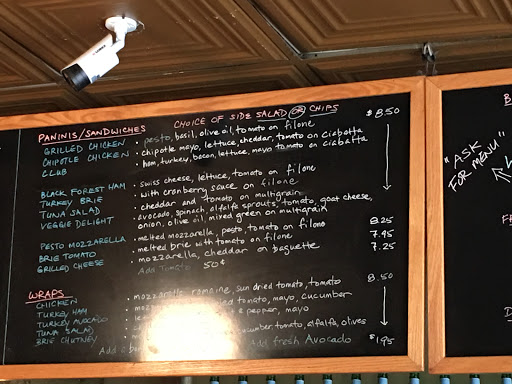 PANINIS/SANDWICHES CHOICE OF SIDE SALAD OR CHIPS
GRILLED CHICKEN • pesto, basil, olive oil, tomato on filone $8.50
CHIPOTLE CHICKEN • chipotle mayo, lettuce, cheddar, tomato on ciabatta
CLUB • ham, turkey, bacon, lettuce, mayo tomato on ciabatta
BLACK FOREST HAM • swiss cheese, lettuce, tomato on filone
TURKEY BRIE • with cranberry sauce on filone
TUNA SALAD • cheddar and tomato on multigrain
VEGGIE DELIGHT • avocado, spinach, alfalfa sprouts, tomato, goat cheese,
onion, olive oil, mixed green on multigrain
PESTO MOZZARELLA • melted mozzarella, pesto, tomato on filone 8.25
BRIE TOMATO • melted brie with tomato on filone 7.95
GRILLED CHEESE • mozzarella, cheddar on baguette 7.25
Add Tomato 50¢
WRAPS 8.50
CHICKEN • mozzarella, romaine, sun dried tomato, tomato
TURKEY HAM tomato, mayo, cucumber
TURKEY AVOCADO & pepper, mayo
TUNA SALAD cucumber, tomato, alfalfa, olives
BRIE CHUTNEY
Add Add fresh Avocado $1.95
"ASK
FOR MENU"